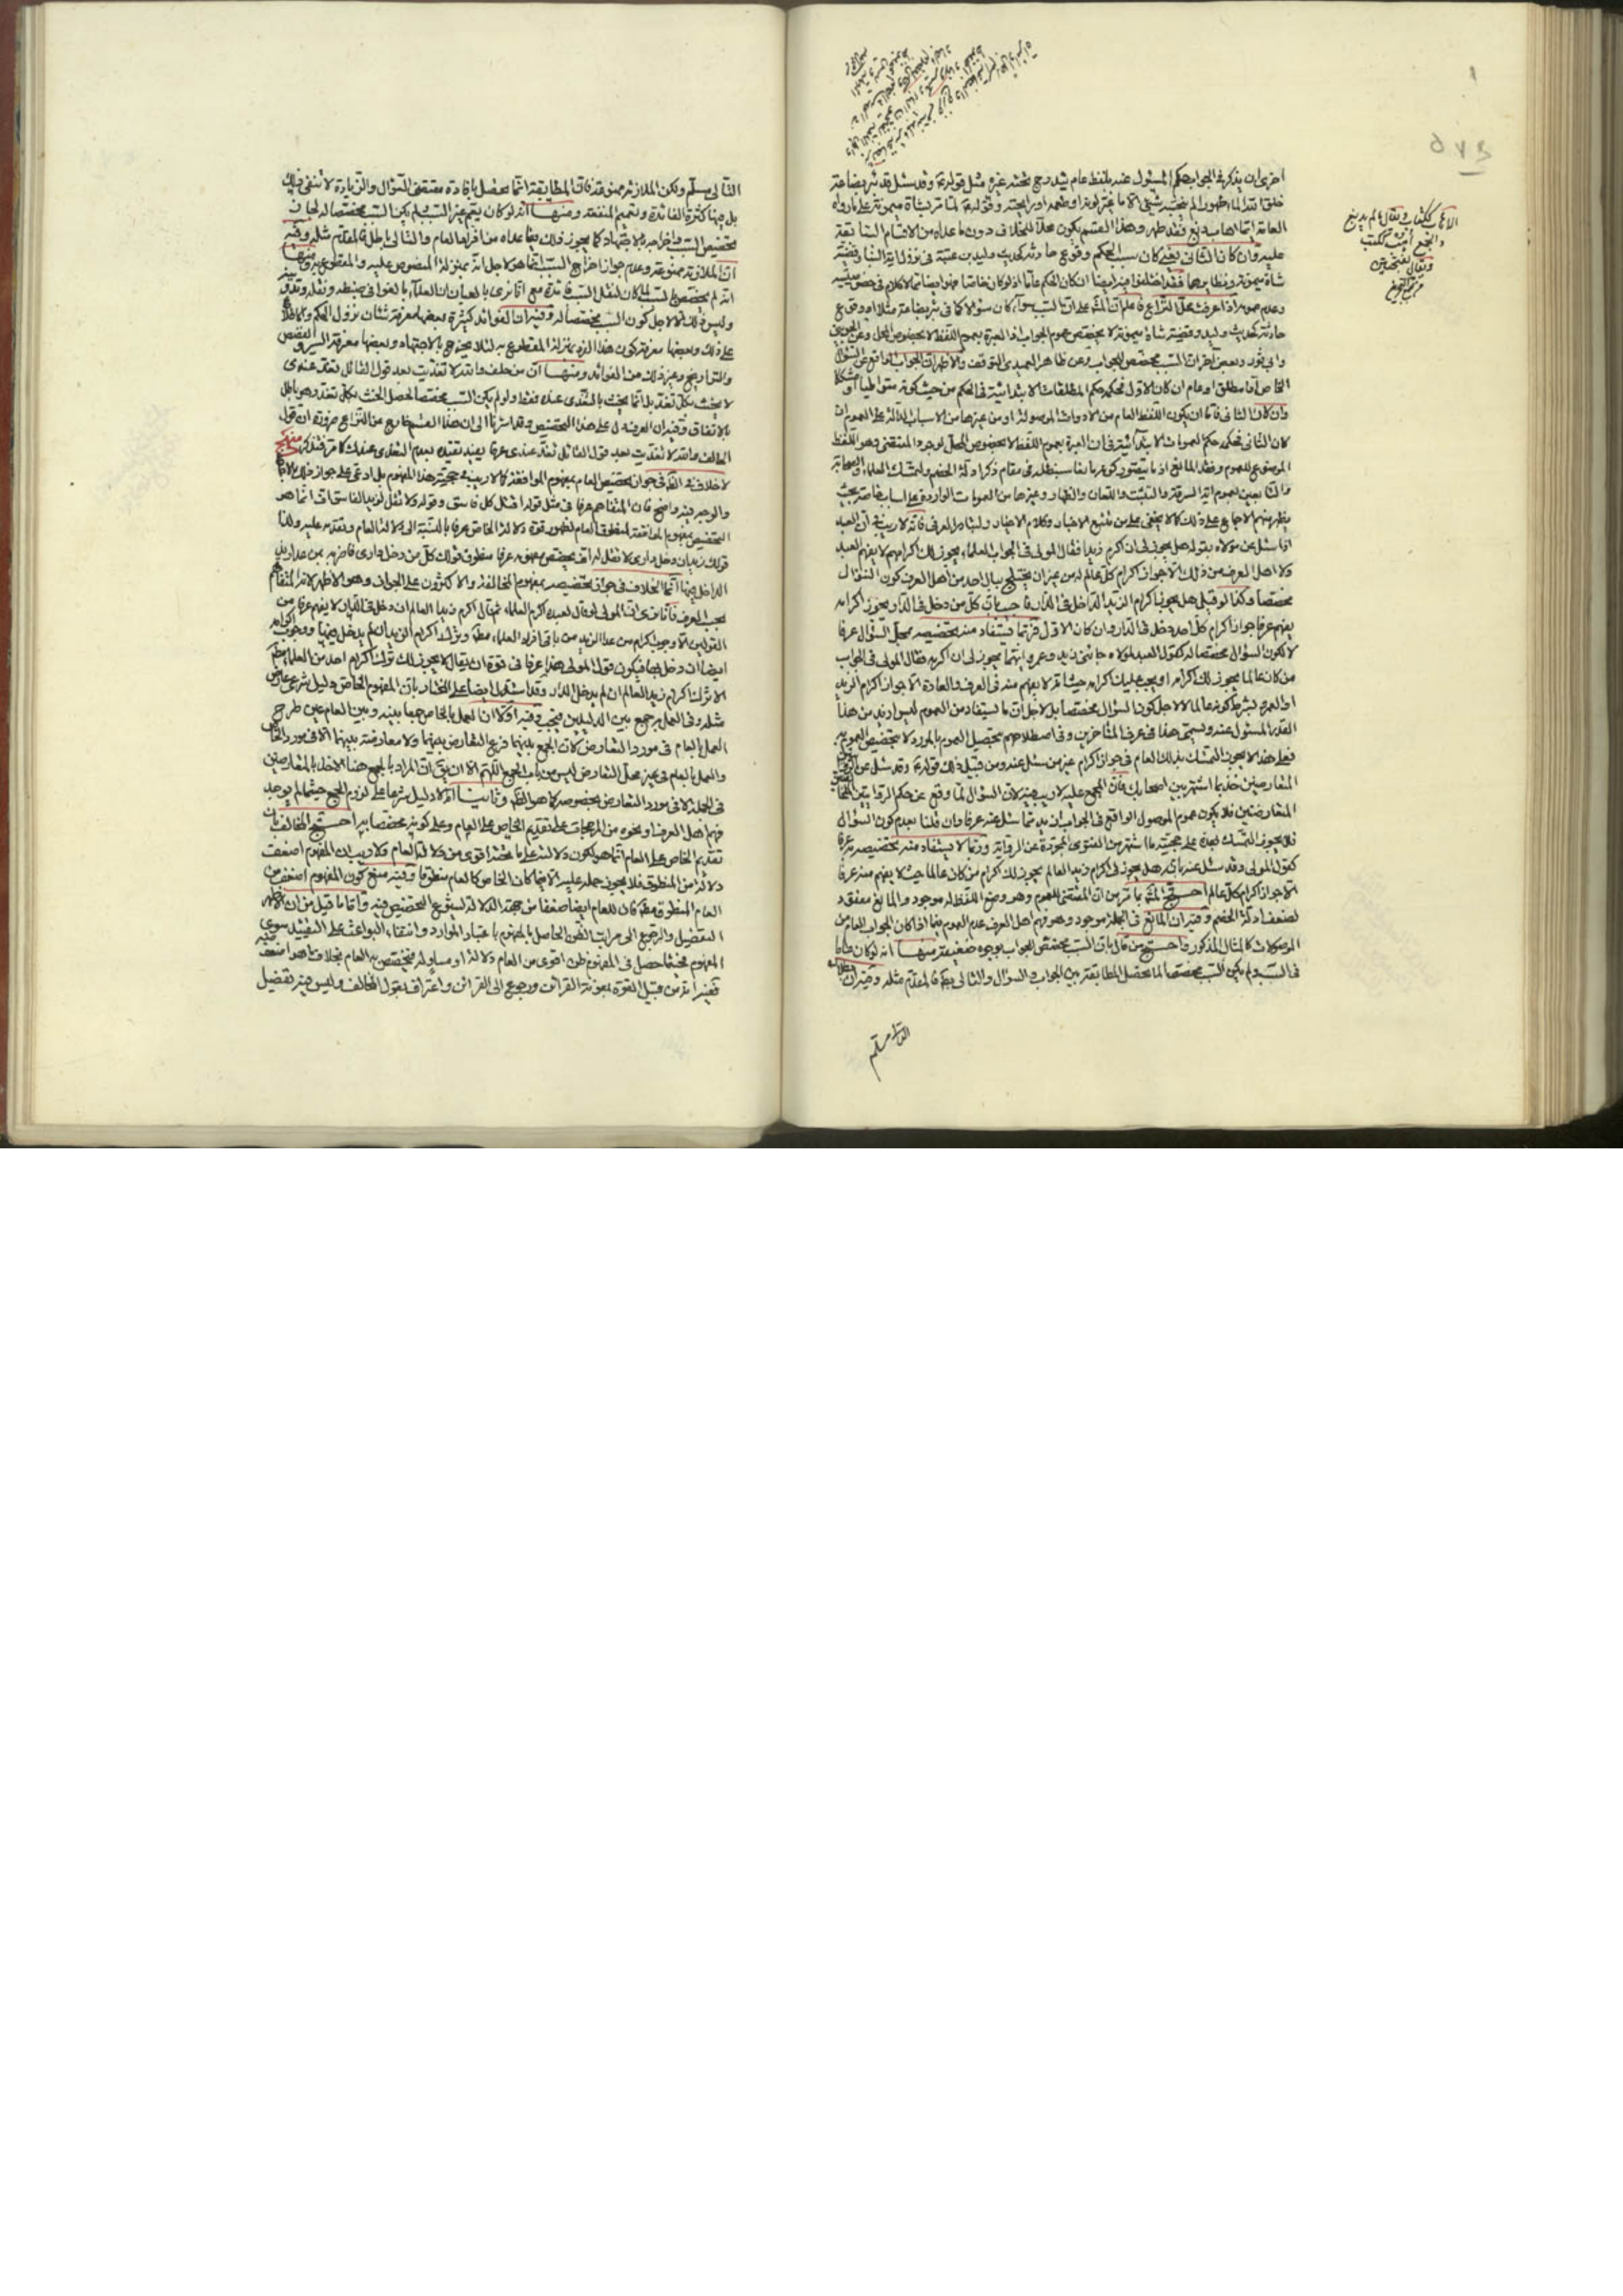 اخرى ان يذكر في الجواب حكم المسئول عنه بلفظ عام يندرج تحته غيره مثل قوله وقد سئل عن بئر بضاعة
خلق الله الماء طهورا لم ينجسه شيئ الا ما غير لونه او طعمه او رايحته وقوله لما مر بشاة ميمونة على ما رواه
العامة ايما اهاب دبغ فقد طهر وهذا القسم يكون محلا للخلاف دون ما عداه من الاقسام
عليه وان كان الثاني يعني كان سبب الحكم وقوع حادثة كحديث وليد بن عقبة في نزول اية النبأ وقضية
شاة ميمونة ونظايرهما فقد اختلفوا فيه ايضا ان كان الحكم عاما اذ لو كان خاصا فهو ايضا كالكلام في
وعدم عمومه اذا عرفت محل النزاع فاعلم ان على ان السبب سواء كان سؤالا كما في بئر بضاعة مثلا او وقوع
حادثة كحديث وليد وقضية شاة ميمونة لا يخصص عموم الجواب اذ العبرة بعموم اللفظ لا بخصوص المحل وعن
وابي ثور وبعض اخر ان السبب مخصص للجواب وعن ظاهر العميدي التوقف والاظهر ان الجواب الواقع عن السؤال
الخاص اما مطلق او عام ان كان الاول فحكمه حكم المطلقات الابتدائية في الحكم من حيث كونه متواطيا او مشككا
وان كان الثاني فاما ان يكون اللفظ العام من الادوات الموصولة او من غيرها من الاسباب الدالة على العموم ان
كان الثاني فحكمه حكم العمومات الابتدائية في ان العبرة بعموم اللفظ لا بخصوص المحل لوجود المقتضي وهو اللفظ
الموضوع للعموم وفقد المانع اذ ما يتصور كونه مانعا سنبطله في مقام ذكر ادلة الخصم ولتمسك العلماء والصحابة
والتابعين بعموم اية السرقة واللعان والظهار وغيرها من العمومات الواردة على اسباب خاصة بحيث
يظهر منهم الاجماع على ذلك كما لا يخفى على من تتبع الاخبار وكلام الاخيار ولتبادر العرفي فانه لا ريب في ان العبد
اذا سئل عن مولاه بقوله هل يجوز لي ان اكرم زيدا فقال المولى في الجواب العلماء يجوز لك اكرامهم لا يفهم العبد
ولا اهل العرف من ذلك الا جواز اكرام كل عالم له من غير ان يختلج ببال احد من اهل العرف كون السؤال
مخصصا وكذا لو قيل هل يجوز اكرام الزيد الداخل في الدار فاجيب بان كل من دخل في الدار يجوز اكرامه
يفهم عرفا جواز اكرام كل احد دخل في الدار وان كان الاول فربما يستفاد منه تخصيصه بمحل السؤال عرفا
لا لكون السؤال مخصصا له كقول العبد لمولاه جائني زيد وعمرو ايهما يجوز لي ان اكرمه فقال المولى في الجواب
من كان عالما يجوز لك اكرامه او يجب عليك اكرامه حيث انه لا يفهم منه في العرف والعادة الا جواز اكرام الزيد
او العمرو بشرط كونه عالما لا لاجل كون السؤال مخصصا بل لاجل ان ما يستفاد من العموم ليس ازيد من هذا
القدر المسئول عنه ويسمى هذا في عرف المتأخرين وفي اصطلاحهم تخصيص العموم بالمورد لا تخصيص العموم به
فعلى هذا لا يجوز التمسك بذلك العام في جواز اكرام غير من سئل عنه ومن قبيل ذلك قوله وقد سئل عن
المتعارضين خذ بما اشتهر بين اصحابك فان المجمع عليه لا ريب فيه لان السؤال لما وقع عن حكم الروايتين
المتعارضتين فلا يكون عموم الموصول الواقع في الجواب ازيد مما سئل عنه عرفا وان قلنا بعدم كون السؤال
فلا يجوز التمسك بهذه على حجية ما اشتهر من الفتوى المجردة عن الرواية وربما لا يستفاد منه تخصيصه به عرفا
كقول المولى وقد سئل عنه بان هل يجوز لي اكرام زيد العالم يجوز لك اكرام من كان عالما حيث لا يفهم منه عرفا
الا جواز اكرام كل عالم احتج بما مر من ان المقتضي للعموم وهو وضع اللفظ له موجود والمانع مفقود
لضعف ادلة الخصم وفيه ان المانع في الجملة موجود وهو فهم اهل العرف عدم العموم فيما اذا كان الجواب العام من
الموصولات كالمثال المذكور احتج من قال بان السبب مخصص للجواب بوجوه ضعيفة منها انه لو كان عاما
في السبب ولم يكن السبب مخصصا لما يحصل المطابقة بين الجواب والسؤال والتالي بط فالمقدم مثله وفيه ان
التالي مسلم ولكن الملازمة ممنوعة فان المطابقة انما تحصل بافادة مقتضى السؤال والزيادة لا تنفي ذلك
بل فيها كثرة الفائدة وتعميم المنفعة ومنها انه لو كان يعم غير السبب ولم يكن السبب مخصصا له لجاز
تخصيص السبب واخراجه بالاجتهاد كما يجوز ذلك فيما عداه من افراد العام والتالي باطل فالمقدم مثله وفيه
ان الملازمة ممنوعة وعدم جواز اخراج السبب انما هو لاجل انه بمنزلة المنصوص عليه والمقطوع به ومنها
انه لو لم يخصص السبب لما كان لنقل السبب فائدة مع انا نرى بالعيان ان العلماء بالغوا في ضبطه ونقله
وليس ذلك الا لاجل كون السبب مخصصا له وفيه ان الفوائد كثيرة بعضها معرفة شان نزول الحكم
على ذلك وبعضها معرفة كون هذا الفرد بمنزلة المقطوع به لئلا يخرج بالاجتهاد وبعضها معرفة السير والقصص
والتواريخ وغير ذلك من الفوائد ومنها ان من حلف والله لا تغديت بعد قول القائل تغد عندي
لا يحنث بكل تغد بل انما يحنث بالتغدي عنده فقط ولو لم يكن السبب مخصصا لحصل الحنث بكل تغد وهو باطل
بالاتفاق وفيه ان العرف دل على هذا التخصيص وقد اشرنا الى ان هذا القسم خارج عن النزاع ضرورة ان قول
الحالف والله لا تغديت بعد قول القائل تغد عندي عرفا يفيد تقييده بعدم التغدي عندك كما مر فتذكر منهج
لا خلاف في جواز تخصيص العام بمفهوم الموافقة كما لا ريب في حجية هذا المفهوم بل ادعي على جواز ذلك
والوجه فيه واضح فان المتفاهم عرفا في مثل قوله اقتل كل فاسق وقوله ولا تقل لزيد الفاسق اف انما هو
التخصيص بمفهوم الموافقة لمنطوق العام لظهور قوة دلالة الخاص عرفا بالنسبة الى دلالة العام وتقدمه عليه ولذا
قولك زيد ان دخل داري لا تقل له اف يخصص مفهومه عرفا منطوق قولك كل من دخل داري فاضربه بمن عدا زيد
الداخل فيها انما الخلاف في جواز تخصيصه بمفهوم المخالفة والاكثرون على الجواز وهو الاظهر لانه المتفاهم
بحسب العرف فانا نرى ان المولى لو قال لعبده اكرم العلماء ثم قال اكرم زيدا العالم ان دخل في الدار لا يفهم عرفا من
القولين الا وجوب اكرام من عدا الزيد من باقي افراد العلماء مطلقا وترك اكرام الزيد ان لم يدخل فيها ووجوب اكرامه
ايضا ان دخلها فيكون قول المولى هذا عرفا في قوة ان يقال لا يجوز لك ترك اكرام احد من العلماء
الا ترك اكرام زيد العالم ان لم يدخل الدار وقد استدل ايضا على المختار بان المفهوم الخاص دليل شرعي عارض
مثله وفي العمل به جمع بين الدليلين فيجب وفيه اولا ان العمل بالخاص جمعا بينه وبين العام عين طرح
العمل بالعام في مورد التعارض لان الجمع بينهما فرع التعارض بينهما ولا معارضة بينهما الا في مورد الخاص
والعمل بالعام في غير محل التعارض ليس من باب الجمع اللهم الا ان يق ان المراد بالجمع هنا الاخذ بالمتعارضين
في الجملة لا في مورد التعارض بخصوصه كما هو وثانيا انه لا دليل شرعا على لزوم الجمع حيثما لم يوجد
فهم اهل العرف او نحوه من المرجحات على تقديم الخاص على العام وعلى كونه مخصصا به احتج المخالف بان
تقديم الخاص على العام انما هو لكون دلالته على ما تحته اقوى من دلالة العام ولا ريب ان المفهوم اضعف
دلالة من المنطوق فلا يجوز حمله عليه الا فيما كان الخاص كالعام منطوقا وفيه منع كون المفهوم اضعف من
العام المنطوق مطلقا فان للعام ايضا ضعفا من جهة الدلالة لشيوع التخصيص فيه واما ما قيل من ان الاظهر
التفضيل والرجوع الى مراتب الظن الحاصل بالمفهوم باعتبار الموارد وانتفاء البواعث على التقييد سوى
المفهوم فحيثما حصل في المفهوم ظن اقوى من العام دلالة او مساو له فيخصص به العام بخلاف ما هو اضعف منه
ففيه انه من قبيل القوة بمعونة القرائن ورجوع الى القرائن واعتراف بقول المخالف وليس فيه تفضيل